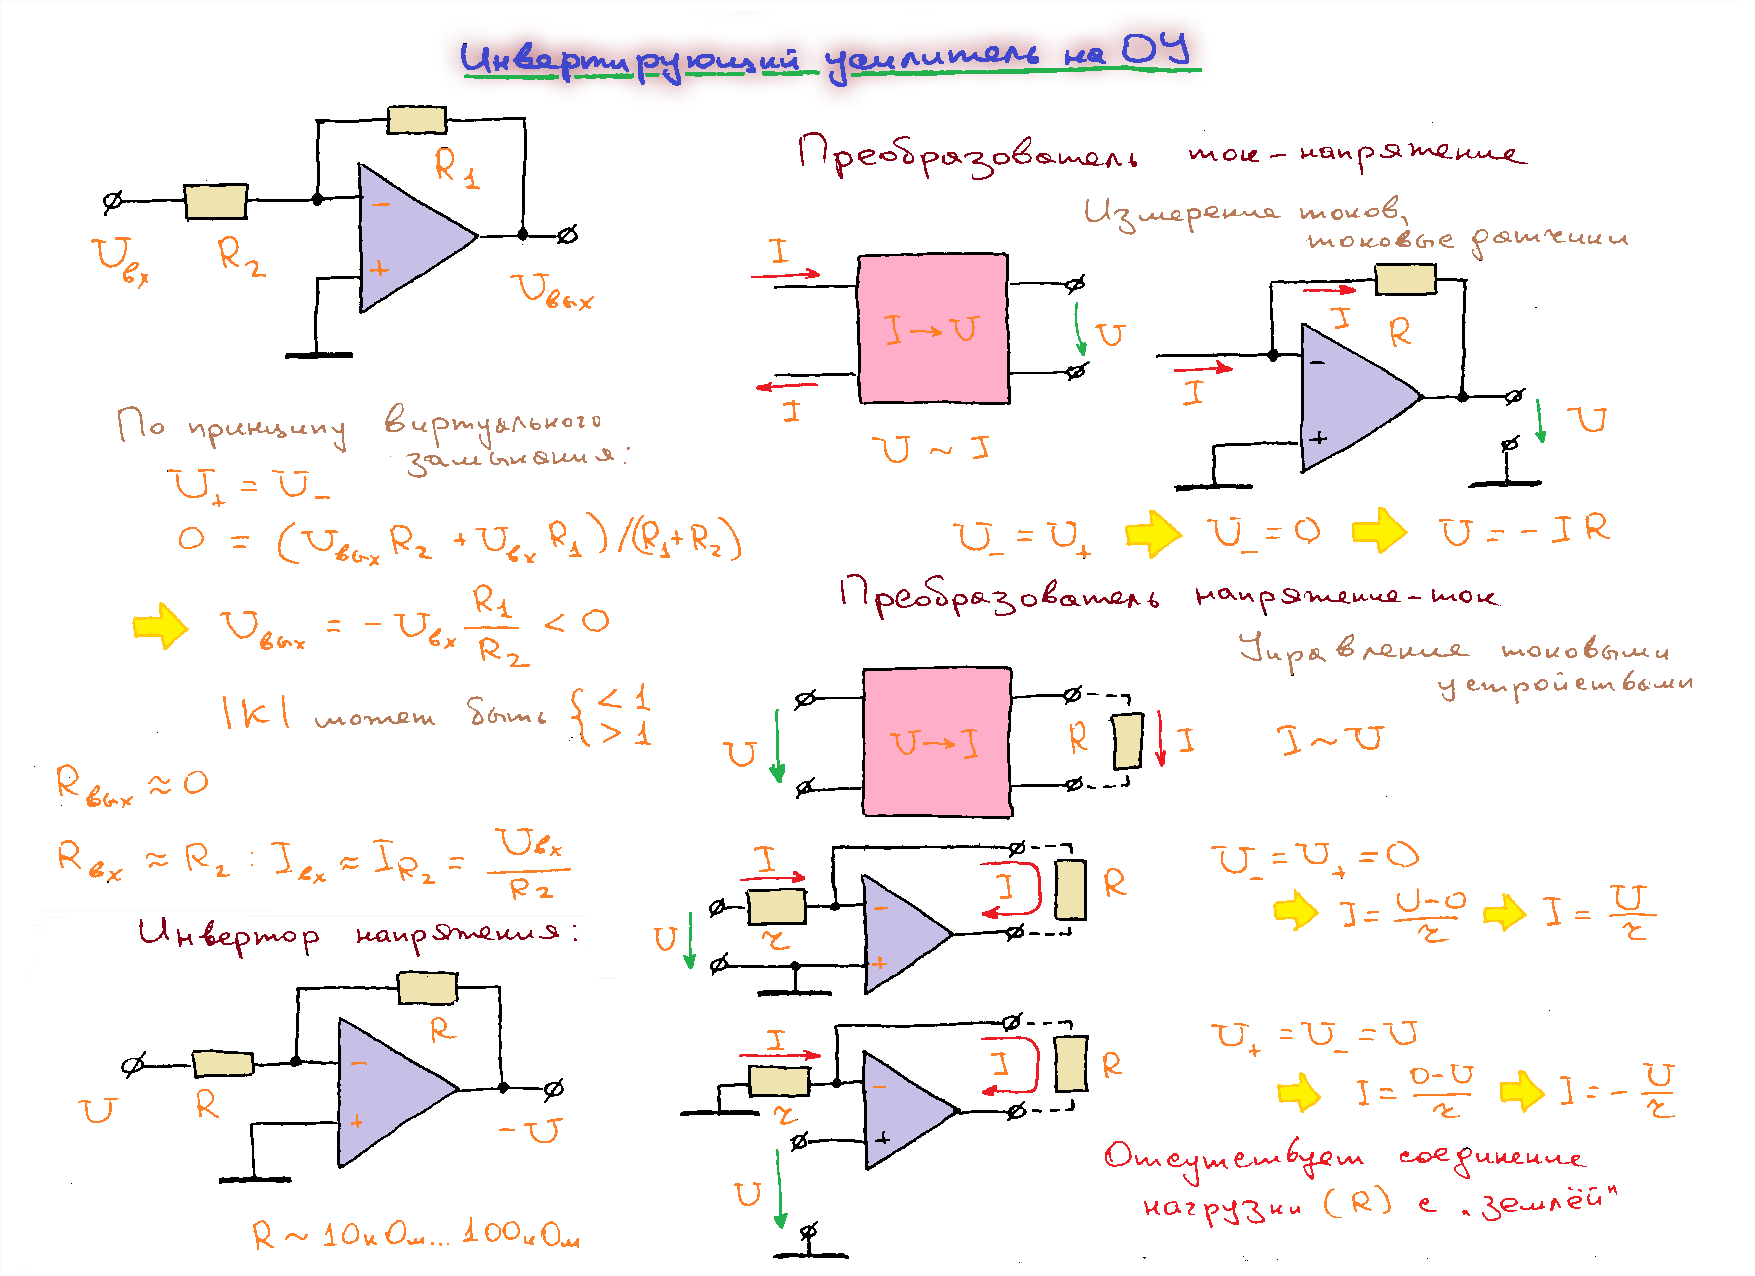 Инвертирующий усилитель на ОУ
R₁
−
+
Uвх
R₂
Uвых
По принципу виртуального
замыкания:
U₊ = U₋
0 = (Uвых R₂ + Uвх R₁)/(R₁+R₂)
Uвых = − Uвх R₁/R₂ < 0
|K| может быть { < 1
> 1
Rвых ≈ 0
Rвх ≈ R₂ : Iвх ≈ I_R₂ = Uвх/R₂
Инвертор напряжения:
R
−
+
U
R
−U
R ~ 10кОм... 100кОм
Преобразователь ток-напряжение
Измерение токов,
токовые датчики
I
I → U
U
I
U ~ I
I
R
−
I
+
U
U₋ = U₊ U₋ = 0 U = − I R
Преобразователь напряжение-ток
Управление токовыми
устройствами
U
U → I
R
I
I ~ U
I
I
R
−
r
U
+
U₋ = U₊ = 0
I = (U−0)/r I = U/r
I
I
R
−
r
+
U
U₊ = U₋ = U
I = (0−U)/r I = − U/r
Отсутствует соединение
нагрузки (R) с „землёй"